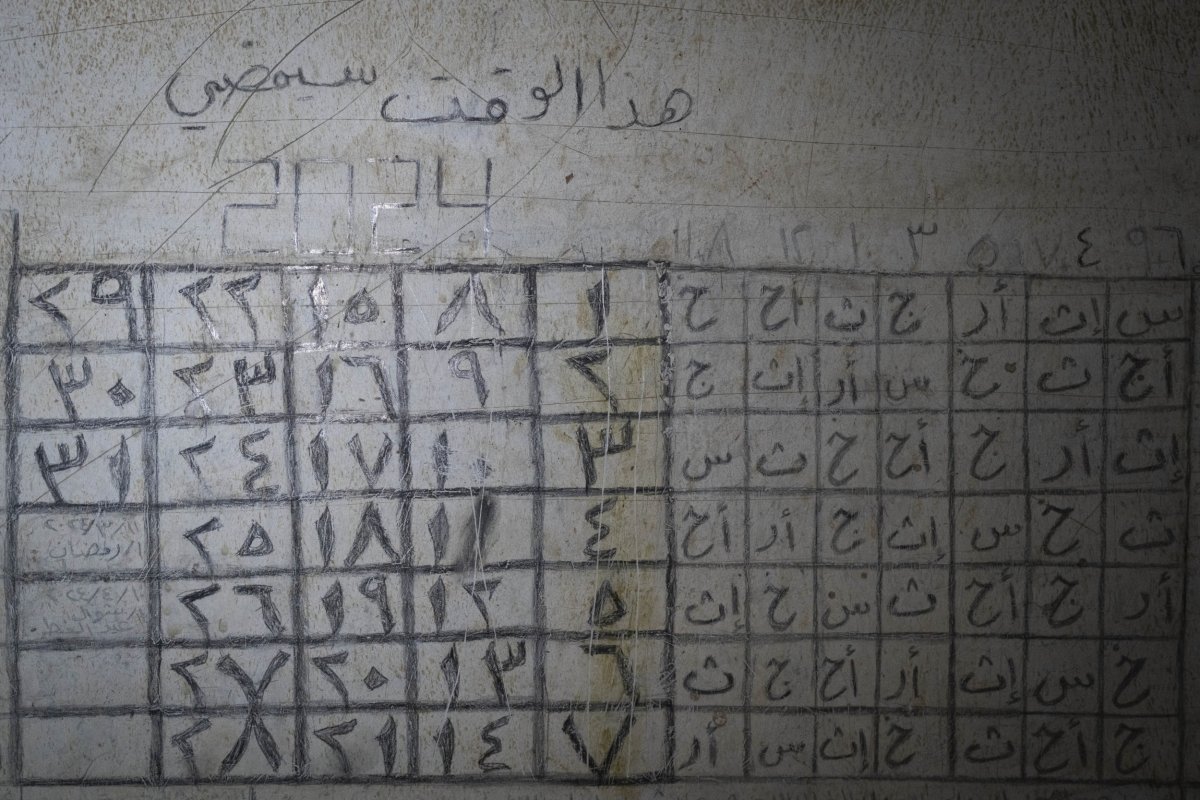 هدا الوقت سيمضي
2024
٩٦ ٤ ٥ ٣ ١٢
س إث أر ج ث أح خ ١ ٨ ١٥ ٢٢ ٢٩
أح ث خ س أر إث ج ٢ ٩ ١٦ ٢٣ ٣٠
إث أر ج أح خ ث س ٣ ١٠ ١٧ ٢٤ ٣١
ث خ س إث ج أر أح ٤ ١١ ١٨ ٢٥
١١/٣/٢٠٢٤
١/رمضان
أر ج أح ث س خ إث ٥ ١٢ ١٩ ٢٦
شوال
خ س إث أر أح ج ث ٦ ١٣ ٢٠ ٢٧
ج أح ث خ إث س أر ٧ ١٤ ٢١ ٢٨